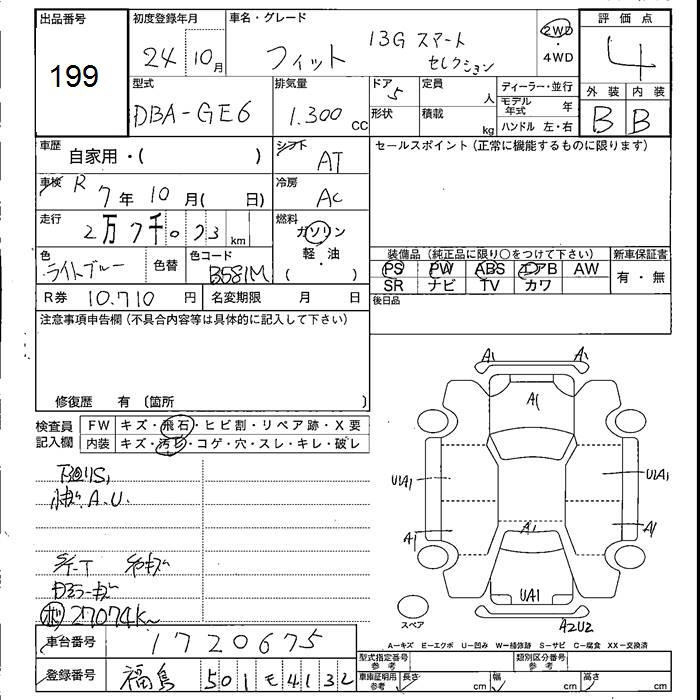 出品番号 初度登録年月 車名・グレード 評価点
199
24 10月 フィット 13G スマート セレクション
2WD・4WD
4
型式 排気量 ドア 定員 ディーラー・並行 外装 内装
DBA-GE6 1.300 cc 5 人 モデル年式 年 B B
形状 積載 kg ハンドル 左・右
車歴 自家用・( ) シフト AT
セールスポイント(正常に機能するものに限ります)
車検 R 7年 10月( 日) 冷房 AC
走行 2万7千073 km 燃料 ガソリン・軽油 ( )
色 ライトブルー 色替 色コード B581M
装備品(純正品に限り○をつけて下さい) 新車保証書
PS PW ABS エアB AW 有・無
SR ナビ TV カワ
R券 10.710 円 名変期限 月 日
後日品
注意事項申告欄(不具合内容等は具体的に記入して下さい)
修復歴 有 (箇所 )
検査員記入欄 FW キズ・飛石・ヒビ割・リペア跡・X要
内装 キズ・汚れ・コゲ・穴・スレ・キレ・破レ
A1 A1
A1
U1A1 U1A1
A1 A1 A1
A.U.
UA1
A2U2
27074K~
スペア
A-キズ E-エクボ U-凹み W-補修跡 S-サビ C-腐食 XX-交換済
車台番号 1720675
型式指定番号 参考 類別区分番号 参考
登録番号 福島 501 モ 4132
車庫証明用 参考 長さ cm 幅 cm 高さ cm